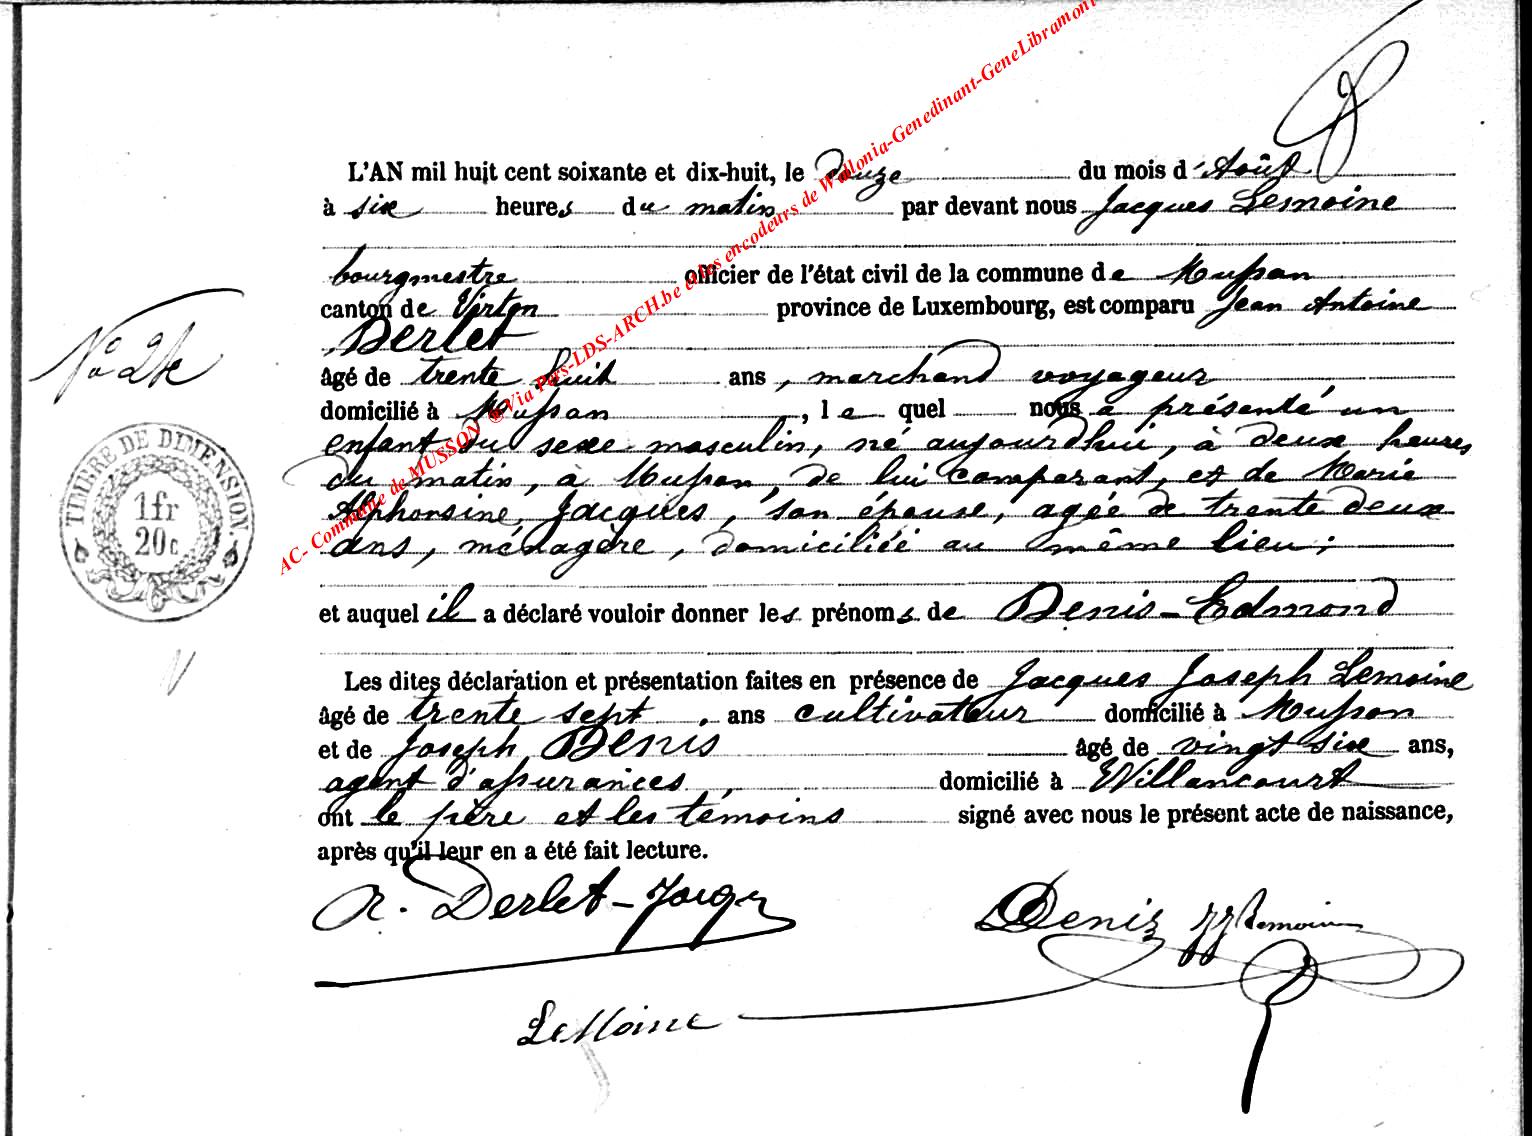 L'AN mil huit cent soixante et dix-huit, le douze du mois d'Août
à six heures du matin par devant nous Jacques Lemoine
bourgmestre officier de l'état civil de la commune de Musson
canton de Virton province de Luxembourg, est comparu Jean Antoine
Derlet
âgé de trente huit ans, marchand voyageur
domicilié à Musson, le quel nous a présenté un
enfant du sexe masculin, né aujourd'hui, à deux heures
du matin, à Musson, de lui comparant, et de Marie
Alphonsine Jacques, son épouse, agée de trente deux
ans, ménagère, domiciliée au même lieu;
et auquel il a déclaré vouloir donner les prénoms de Denis-Edmond
Les dites déclaration et présentation faites en présence de Jacques Joseph Lemoine
âgé de trente sept ans cultivateur domicilié à Musson
et de Joseph Denis âgé de vingt six ans,
agent d'assurances, domicilié à Willancourt
ont le père et les témoins signé avec nous le présent acte de naissance,
après qu'il leur en a été fait lecture.
A. Derlet-Jacqu Denis JJ Lemoine
LeMoine
N°
TIMBRE DE DIMENSION
1fr
20c
AC- Commune de MUSSON ® Via Pays-LDS-ARCH.be et les encodeurs de Wallonia-Genedinant-GeneLibramont